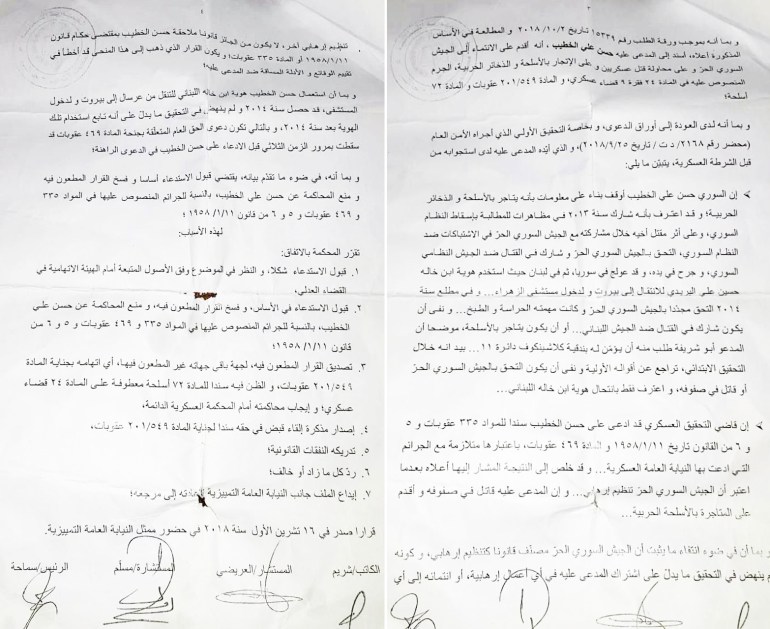 ٣
و بما أنه بموجب ورقة الطلب رقم ١٥٣٣٩ تاريخ ٢٠١٨/١٠/٢ و المطالعة في الأساس
المذكورة أعلاه، أسند إلى المدعى عليه حسن علي الخطيب، أنه أقدم على الانتماء إلى الجيش
السوري الحرّ و على محاولة قتل عسكريين و على الإتجار بالأسلحة و الذخائر الحربية، الجرم
المنصوص عليه في المادة ٢٤ فقرة ٩ قضاء عسكري، و المادة ٢٠١/٥٤٩ عقوبات و المادة ٧٢
أسلحة؛
و بما أنه لدى العودة إلى أوراق الدعوى، و بخاصة التحقيق الأولي الذي أجراه الأمن العام
(محضر رقم ٢١٦٨/ د ت / تاريخ ٢٠١٨/٩/٢٥)، و الذي أيّده المدعى عليه لدى استجوابه من
قبل الشرطة العسكرية، يتبيّن ما يلي:
إن السوري حسن علي الخطيب أوقف بناء على معلومات بأنه يتاجر بالأسلحة و الذخائر
الحربية؛ و قد اعترف بأنه شارك سنة ٢٠١٣ في مظاهرات للمطالبة بإسقاط النظام
السوري، وعلى أثر مقتل أخيه خلال مشاركته مع الجيش السوري الحرّ في الاشتباكات ضد
النظام السوري، التحق بالجيش السوري الحرّ و شارك في القتال ضد الجيش النظامي
السوري، و جرح في يده، و قد عولج في سورياء ثم في لبنان حيث استخدم هوية ابن خاله
حسين علي البريدي للانتقال إلى بيروت و لدخول مستشفى الزهراء... و في مطلع سنة
٢٠١٤ التحق مجدّدا بالجيش السوري الحرّ و كانت مهمته الحراسة و الطبخ... و نفى أن
يكون شارك في القتال ضد الجيش اللبناني... أو أن يكون يتاجر بالأسلحة، موضحا أن
المدعو أبو شريفة طلب منه أن يؤمّن له بندقية كلاشينكوف دائرة ١١... بيد انه خلال
التحقيق الابتدائي، تراجع عن أقواله الأولية و نفى أن يكون التحق بالجيش السوري الحرّ
أو قاتل في صفوفه، و اعترف فقط بانتحال هوية ابن خاله اللبناني...
إن قاضي التحقيق العسكري قد ادعى على حسن الخطيب سندا للمواد ٣٣٥ عقوبات و ٥
و ٦ من القانون تاريخ ١٩٥٨/١/١١ و المادة ٤٦٩ عقوبات، باعتبارها متلازمة مع الجرائم
التي ادعت بها النيابة العامة العسكرية... و قد خلص إلى النتيجة المشار إليها أعلاه بعدما
اعتبر أن الجيش السوري الحرّ تنظيم إرهابي... و إن المدعى عليه قاتل في صفوفه و أقدم
على المتاجرة بالأسلحة الحربية...
و بما أن في ضوء انتفاء ما يثبت أن الجيش السوري الحرّ مصنّف قانونا كتنظيم إرهابي، و كونه
ينهض في التحقيق ما يدلّ على اشتراك المدعى عليه في أي أعمال إرهابية، أو انتمائه إلى أي
تنظيم إرهابي آخر، لا يكون من الجائز قانونا ملاحقة حسن الخطيب بمقتضى أحكام قانون
١٩٥٨/١/١١ أو المادة ٣٣٥ عقوبات؛ و يكون القرار الذي ذهب إلى هذا المنحى قد أخطأ في
تقييم الوقائع و الأدلة المساقة ضد المدعى عليه؛
و بما أن استعمال حسن الخطيب هوية ابن خاله اللبناني للتنقل من عرسال إلى بيروت و لدخول
المستشفى، قد حصل سنة ٢٠١٤ و لم ينهض في التحقيق ما يدلّ على أنه تابع استخدام تلك
الهوية بعد سنة ٢٠١٤، و بالتالي تكون دعوى الحق العام المتعلقة بجنحة المادة ٤٦٩ عقوبات قد
سقطت بمرور الزمن الثلاثي قبل الادعاء على حسن الخطيب في الدعوى الراهنة؛
و بما أنه، في ضوء ما تقدّم بيانه، يقتضي قبول الاستدعاء أساسا و فسخ القرار المطعون فيه
و منع المحاكمة عن حسن علي الخطيب، بالنسبة للجرائم المنصوص عليها في المواد ٣٣٥
و ٤٦٩ عقوبات و ٥ و ٦ من قانون ١٩٥٨/١/١١؛
لهذه الأسباب:
تقرّر المحكمة بالاتفاق:
١. قبول الاستدعاء شكلا، و النظر في الموضوع وفق الأصول المتبعة أمام الهيئة الاتهامية في
القضاء العدلي،
٢. قبول الاستدعاء في الأساس، و فسخ القرار المطعون فيه، و منع المحاكمة عن حسن علي
الخطيب، بالنسبة للجرائم المنصوص عليها في المواد ٣٣٥ و ٤٦٩ عقوبات و ٥ و ٦ من
قانون ١٩٥٨/١/١١؛
٣. تصديق القرار المطعون فيه، لجهة باقي جهاته غير المطعون فيها، أي اتهامه بجناية المادة
٢٠١/٥٤٩ عقوبات، و الظن فيه سندا للمادة ٧٢ أسلحة معطوفة على المادة ٢٤ قضاء
عسكري؛ و إيجاب محاكمته أمام المحكمة العسكرية الدائمة،
٤. إصدار مذكرة إلقاء قبض في حقه سندا لجناية المادة ٢٠١/٥٤٩ عقوبات،
٥. تدريكه النفقات القانونية؛
٦. ردّ كل ما زاد أو خالف؛
٧. إيداع الملف جانب النيابة العامة التمييزية لإعادته إلى مرجعه؛
قرارا صدر في ١٦ تشرين الأول سنة ٢٠١٨ في حضور ممثل النيابة العامة التمييزية.
الكاتب/شريم المستشار/العريضي المستشارة/مسلّم الرئيس/سماحة